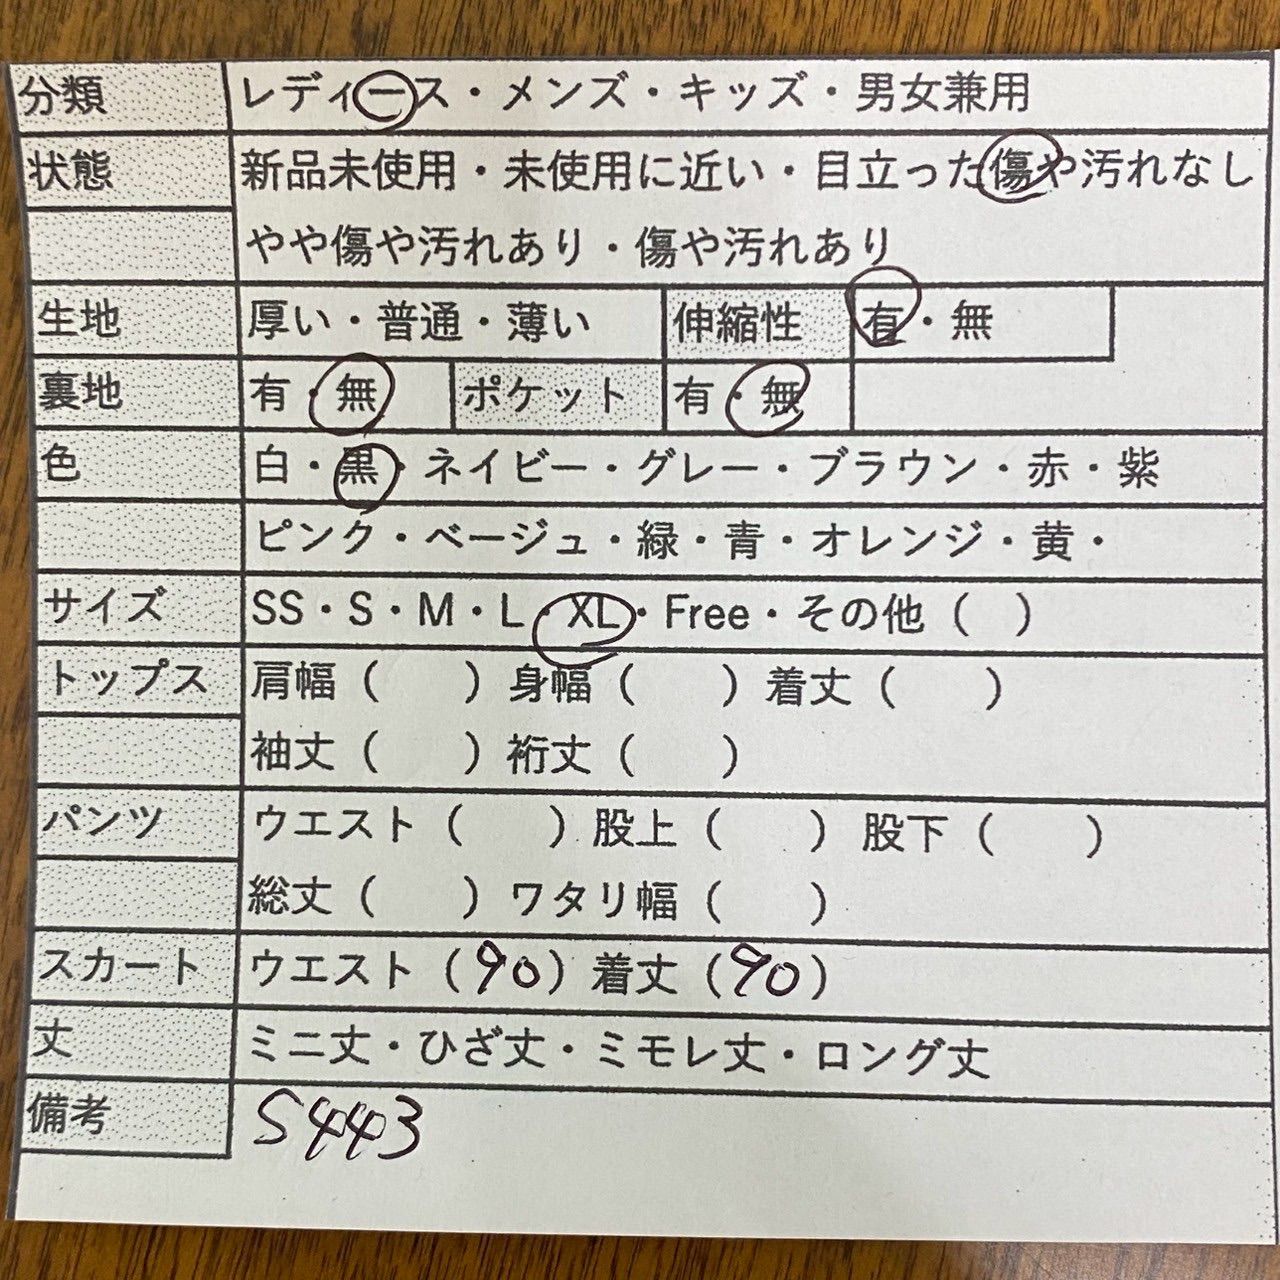 分類 レディース・メンズ・キッズ・男女兼用
状態 新品未使用・未使用に近い・目立った傷や汚れなし
やや傷や汚れあり・傷や汚れあり
生地 厚い・普通・薄い 伸縮性 有・無
裏地 有・無 ポケット 有・無
色 白・黒・ネイビー・グレー・ブラウン・赤・紫
ピンク・ベージュ・緑・青・オレンジ・黄・
サイズ SS・S・M・L・XL・Free・その他（ ）
トップス 肩幅（ ）身幅（ ）着丈（ ）
袖丈（ ）裄丈（ ）
パンツ ウエスト（ ）股上（ ）股下（ ）
総丈（ ）ワタリ幅（ ）
スカート ウエスト（90）着丈（90）
丈 ミニ丈・ひざ丈・ミモレ丈・ロング丈
備考 S443